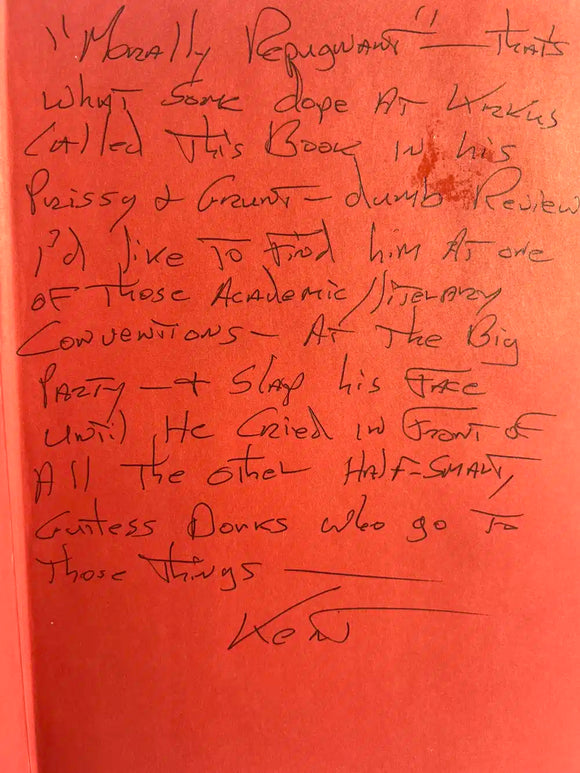 "Morally Repugnant" — that's
what some dope at Kirkus
called this Book in his
Prissy & Grunt-dumb Review
I'd like to find him at one
of those Academic/literary
Conventions — At the Big
Party — & slap his face
until He cried in front of
All the other Half-smart,
Gutless Donks who go to
those things —
Kent